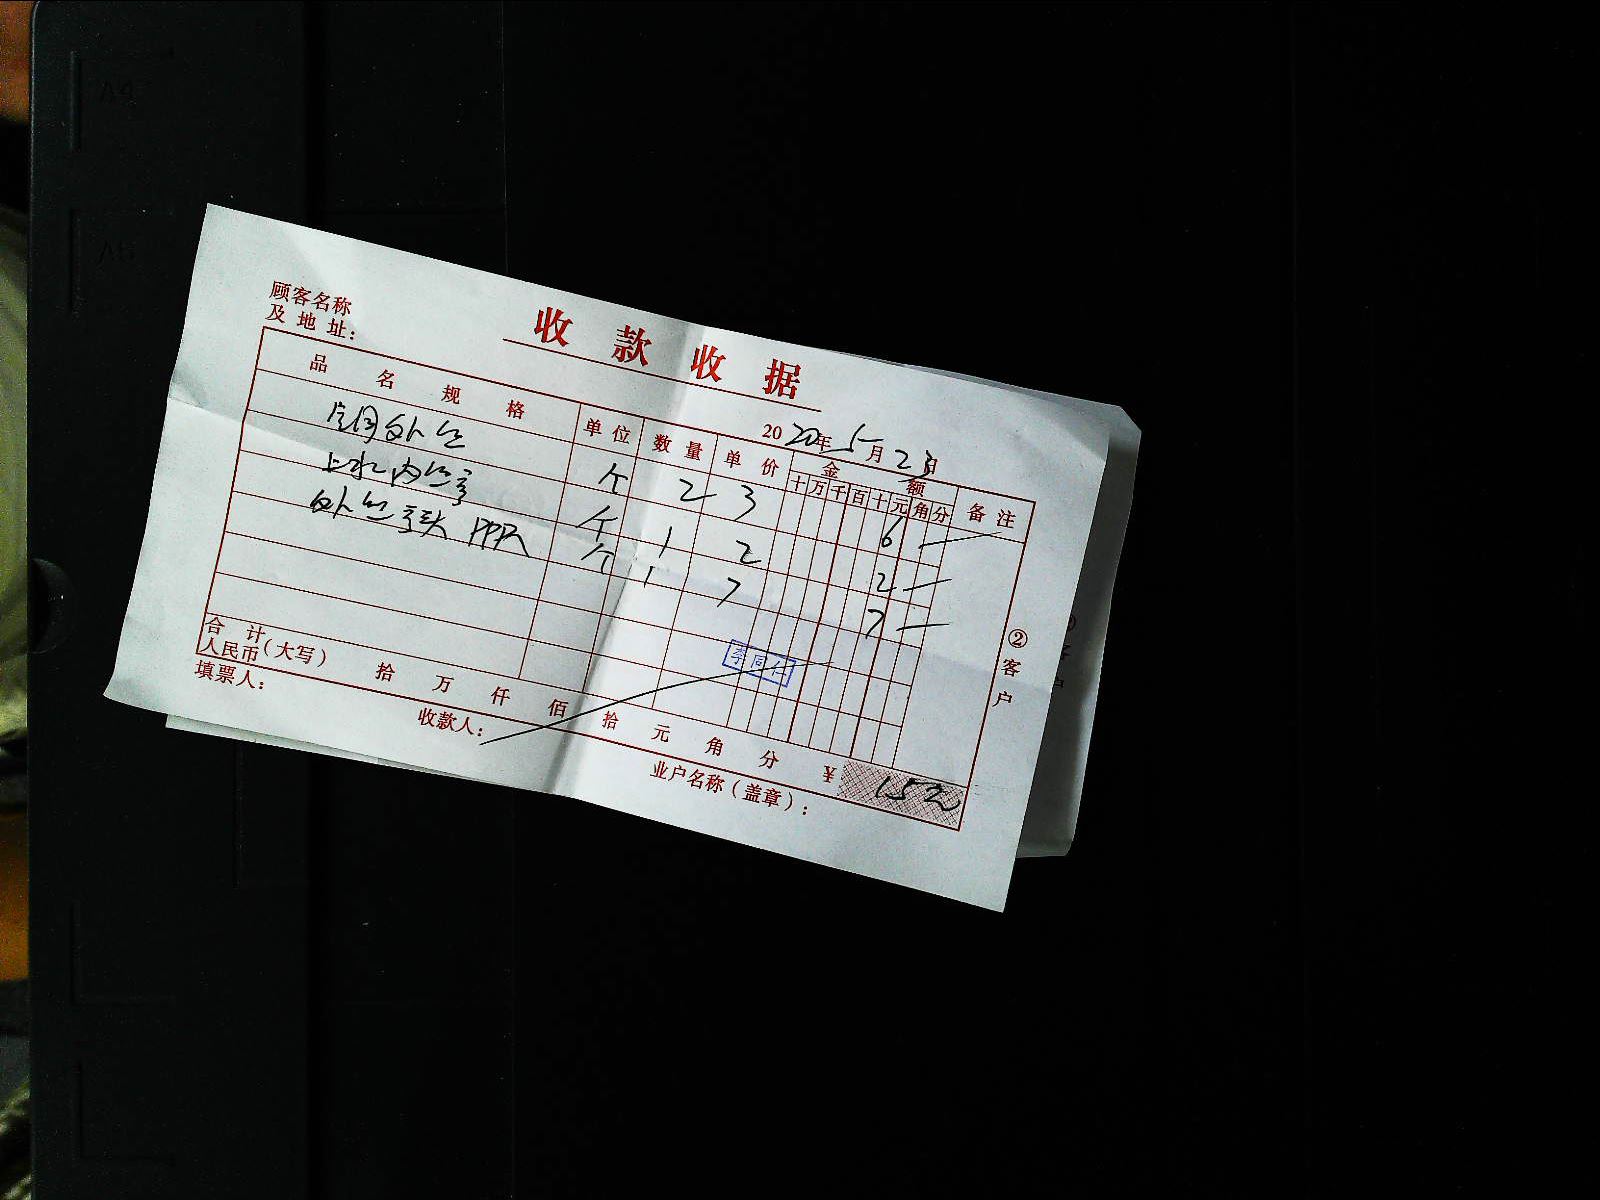 顾客名称
及地址：
收款收据
2020年5月23日
品名规格 单位 数量 单价 金额 备注
十万千百十元角分
外丝 个 2 3 6
上水内丝 个 1 2 2
外丝 PPR 个 1 7 7
李同仁
合计
人民币（大写） 拾 万 仟 佰 拾 元 角 分 ¥ 15元
填票人： 收款人： 业户名称（盖章）：
②客户
A4
A5